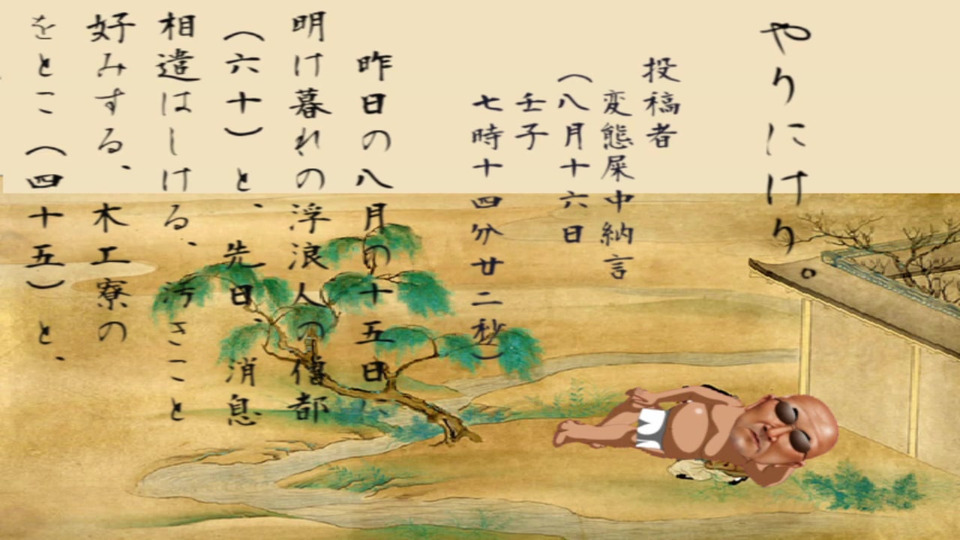 やりにけり。
投稿者
変態屎中納言
（八月十六日
壬子
七時十四分廿二秒）
昨日の八月の十五日
明け暮れの浮浪人の僧都
（六十）と、先日、消息
相遣はしける、汚きこと
好みする、木工寮の
をとこ（四十五）と、